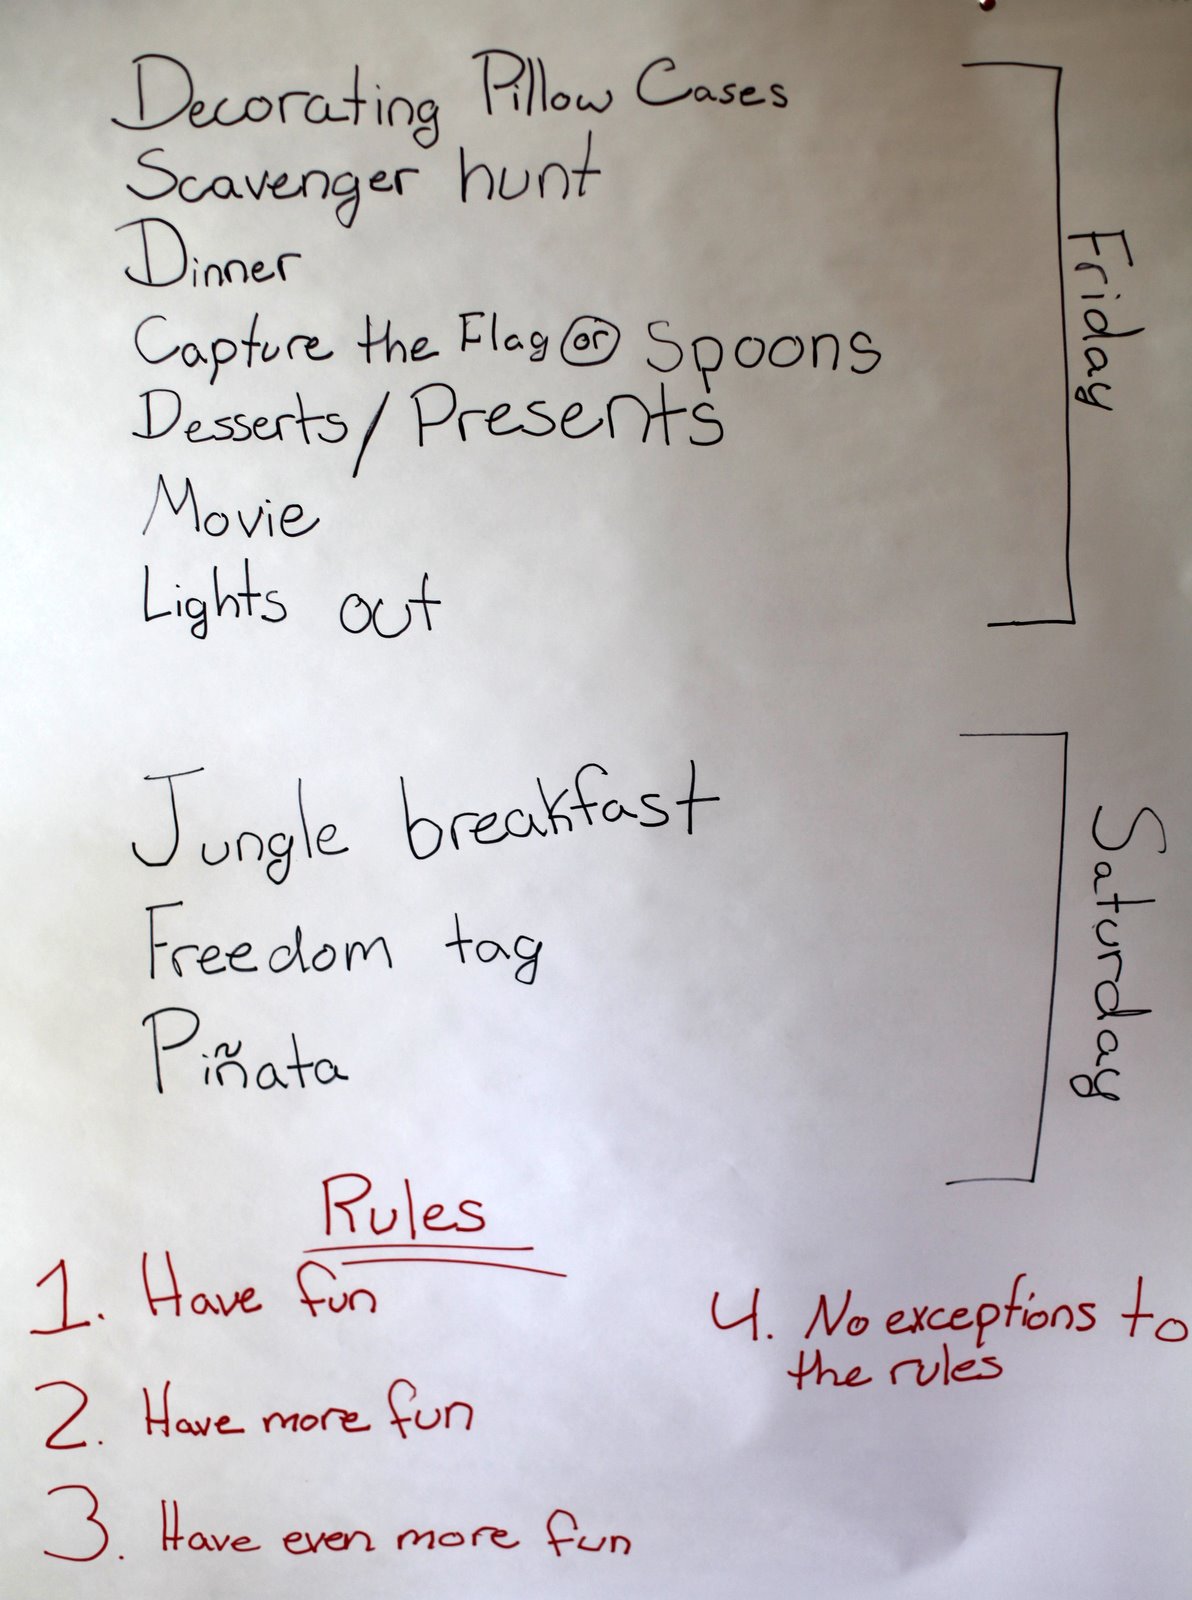 Decorating Pillow Cases
Scavenger hunt
Dinner
Capture the Flag or Spoons
Desserts/Presents
Movie
Lights out
Friday
Jungle breakfast
Freedom tag
Piñata
Saturday
Rules
1. Have fun
2. Have more fun
3. Have even more fun
4. No exceptions to
the rules